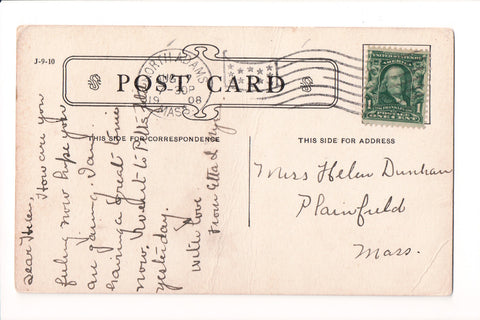 J-9-10
NORTH ADAMS
30P
19 08
MASS.
POST CARD
THIS SIDE FOR CORRESPONDENCE
THIS SIDE FOR ADDRESS
Dear Helen,
How are you
feeling now hope you
are gaining. I am
having a great time
now. Went to Pittsfield
yesterday.
With love
from Etta
Miss Helen Dunham
Plainfield
Mass.